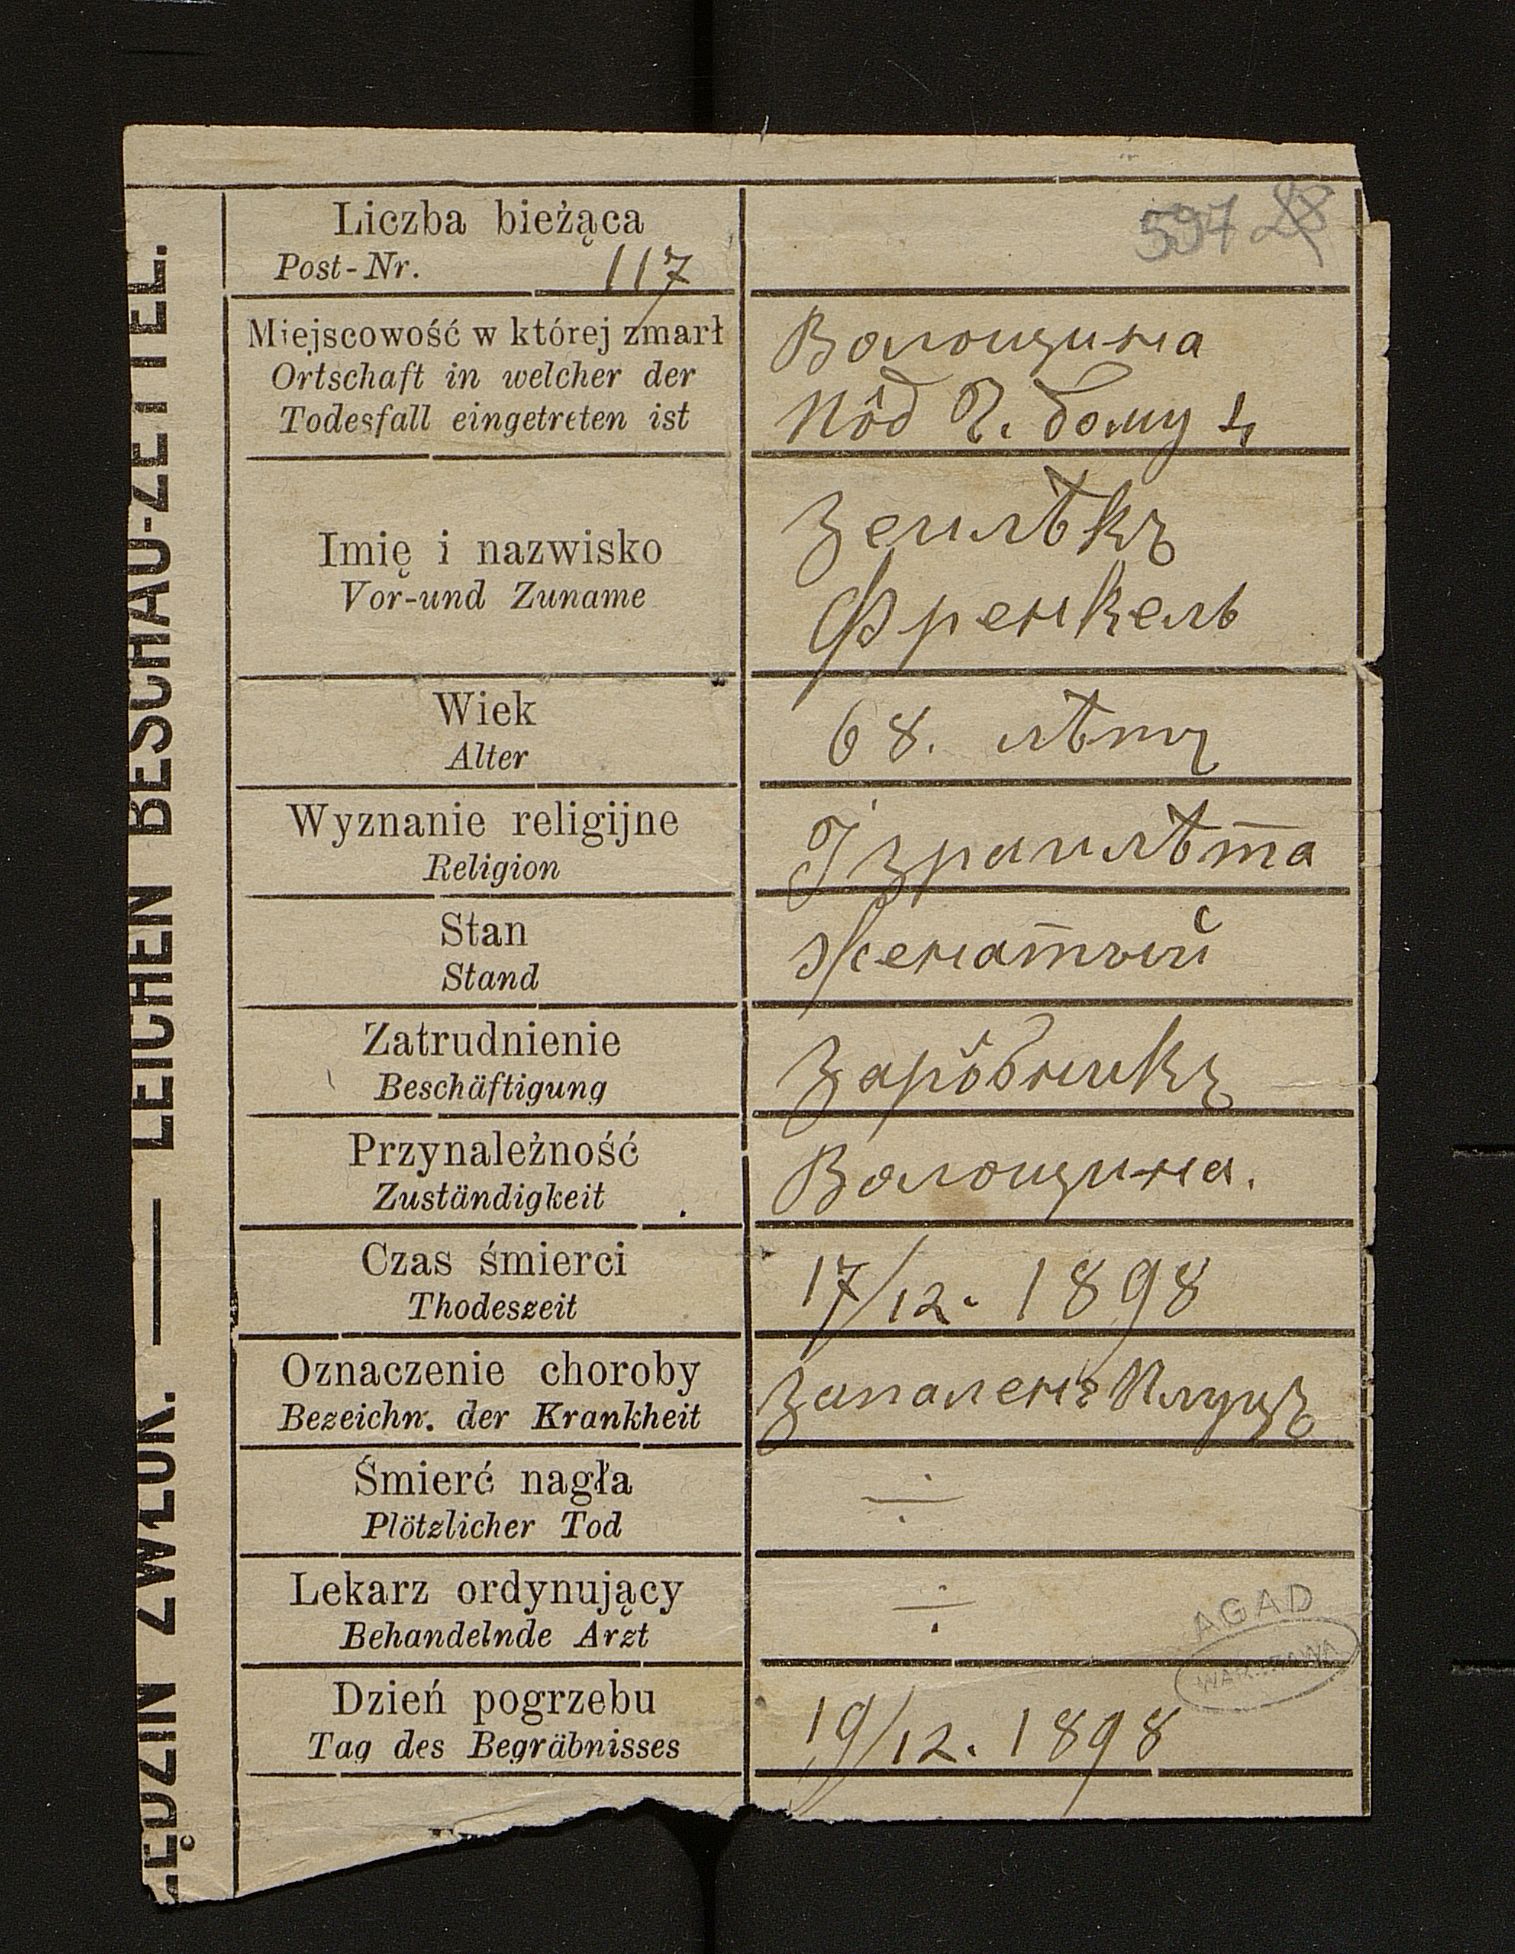 597 88
Liczba bieżąca
Post-Nr. 117
Miejscowość w której zmarł
Ortschaft in welcher der
Todesfall eingetreten ist
Волощина
пôд Ч. дому 4
Imię i nazwisko
Vor-und Zuname
Зеилѣкъ
Френкель
Wiek
Alter
68. лѣтъ
Wyznanie religijne
Religion
Ізраилѣта
Stan
Stand
Женатый
Zatrudnienie
Beschäftigung
Зарôбникъ
Przynależność
Zuständigkeit
Волощина.
Czas śmierci
Thodeszeit
17/12. 1898
Oznaczenie choroby
Bezeichn. der Krankheit
Запалене Плуцъ
Śmierć nagła
Plötzlicher Tod
÷
Lekarz ordynujący
Behandelnde Arzt
÷
AGAD
WARSZAWA
Dzień pogrzebu
Tag des Begräbnisses
19/12. 1898
LĘDZIN ZWŁOK. — LEICHEN BESCHAU-ZETTEL.